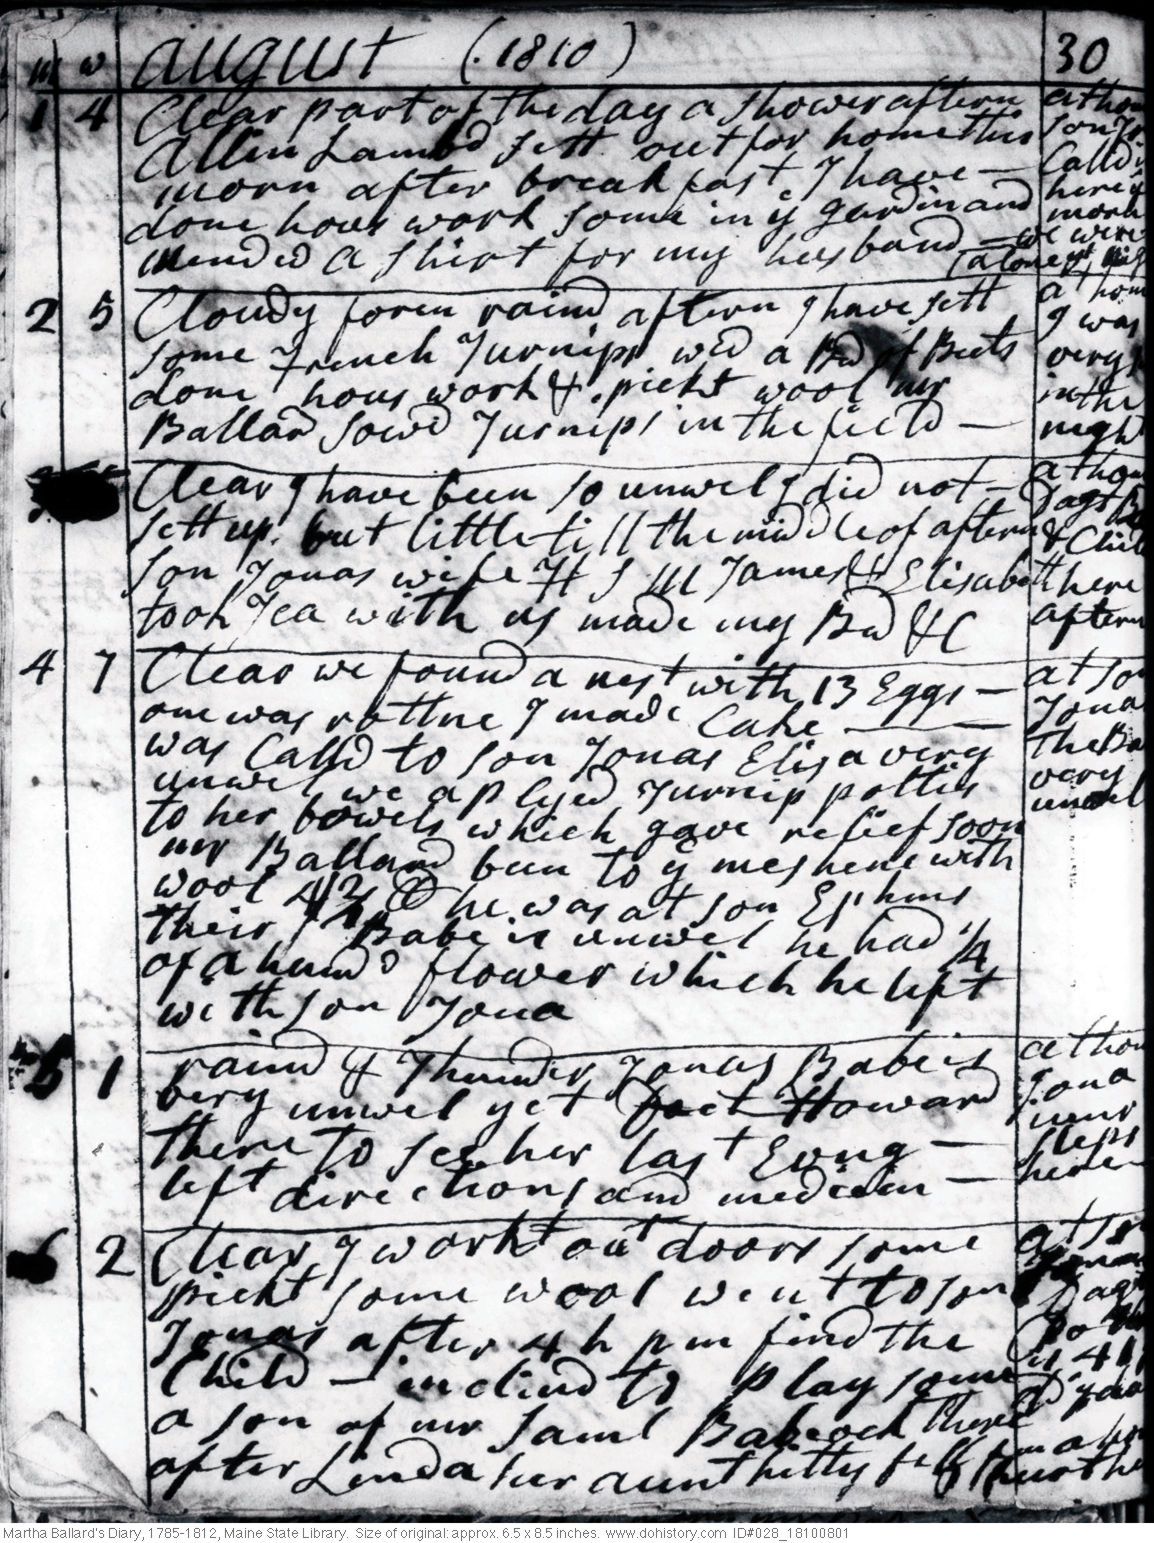 m w august (.1810) 30
1 4 Clear part of the day a shower aftern
Allin Lambd sett out for home this
morn after break fast. I have —
done hous work some in ye gardin and
mended a shirt for my husband —
at hom
son
Calld
here
morn
we were
alone
2 5 Cloudy foren raind aftern I have sett
some French Turnips wed a Bd of Beets
done hous work & pickt wool mr
Ballard sowd Turnips in the field —
at hom
I was
very
in the
night
Clear I have been so unwel I did not —
sett up. but little till the middle of aftern
son Jonas wife H S M James & Elisabeth
took Tea with us made my Bd &C
at hom
& Child
here
aftern
4 7 Clear we found a nest with 13 Eggs —
one was rottne I made Cake —
was Calld to son Jonas Elisa very
unwel we aplyed Turnip pottis
to her bowels which gave relief soon
mr Ballard been to ye meshene with
wool he was at son Ephms
their Babe is unwel he had 1/4
of a hund flower which he left
with son Jona
at son
Jona
the Ba
very
unwel
5 1 raind & Thunder Jonas Babe is
very unwel yet Doct Howard
there to see her last Evng —
left directions and medecin —
at hom
Jona
iunr
sleps
here
6 2 Clear I workt out doors some
pickt some wool went to son
Jonas after 4 h pm find the
Child — inclind to play some
a son of mr Saml Babcock there
after Linda her aunt hitty
at son
Martha Ballard's Diary, 1785-1812, Maine State Library. Size of original: approx. 6.5 x 8.5 inches. www.dohistory.com ID#028_18100801